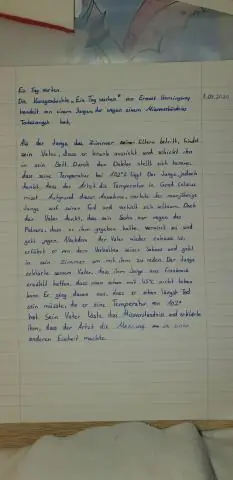 Ein Tag warten.
Die Kurzgeschichte „Ein Tag warten" von Ernest Hemingway
handelt von einem Jungen, der wegen einem Missverständnis
Todesangst hat.
Als der Junge das Zimmer seiner Eltern betritt, findet
sein Vater, dass er krank aussieht und schickt ihn
in sein Bett. Durch den Doktor stellt sich heraus,
dass seine Temperatur bei 102° liegt. Der Junge jedoch
denkt, dass der Arzt die Temperatur in Grad Celsius
misst. Aufgrund dieser Annahme, wartete der neunjährige
Junge auf seinen Tod und verhielt sich seltsam. Doch
der Vater denkt, dass sein Sohn nur wegen des
Fiebers, dass er ihm gegeben hatte. Verreist er und
geht jagen. Nachdem der Vater wieder zuhause ist,
erfährt er von dem Verhalten seines Sohnes und geht
in sein Zimmer um mit ihm zu reden. Der Junge
erklärte seinem Vater, dass ihm Jungs aus Frankreich
erzählt hatten, dass man schon mit 44°C nicht leben
kann. Er ging davon aus, dass er schon längst Tod
sein müsste, da er eine Temperatur von 102°
hat. Sein Vater löste das Missverständnis und erklärte
ihm, dass der Arzt die Messung in einer
anderen Einheit machte.